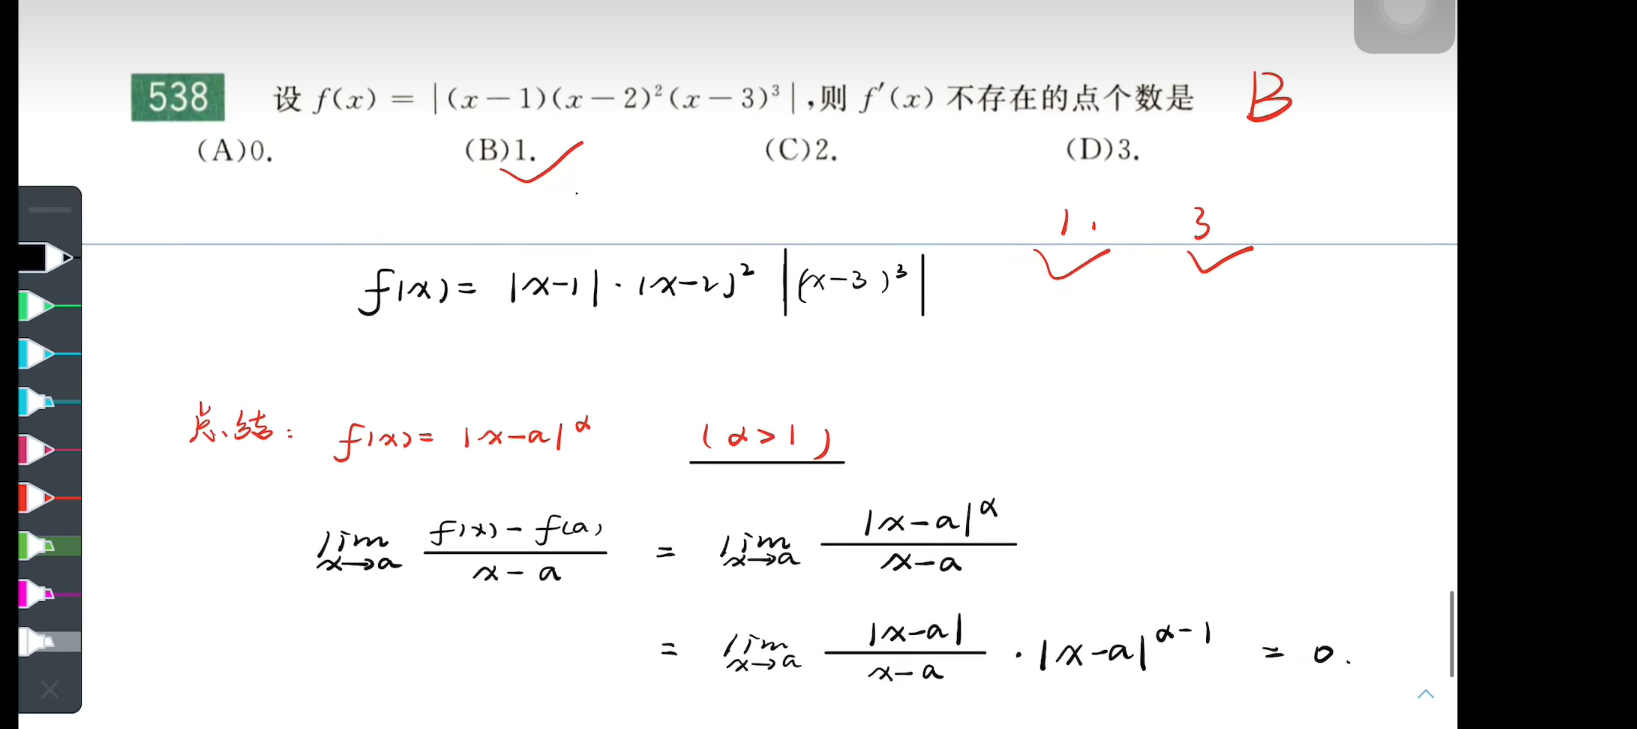 538 设 f(x) = |(x-1)(x-2)²(x-3)³|,则 f′(x) 不存在的点个数是 B
(A)0. (B)1. (C)2. (D)3.
1. 3
f(x) = |x-1| · (x-2)² |(x-3)³|
总结: f(x) = |x-a|^α (α>1)
lim x→a (f(x) - f(a))/(x-a) = lim x→a |x-a|^α/(x-a)
= lim x→a |x-a|/(x-a) · |x-a|^(α-1) = 0.